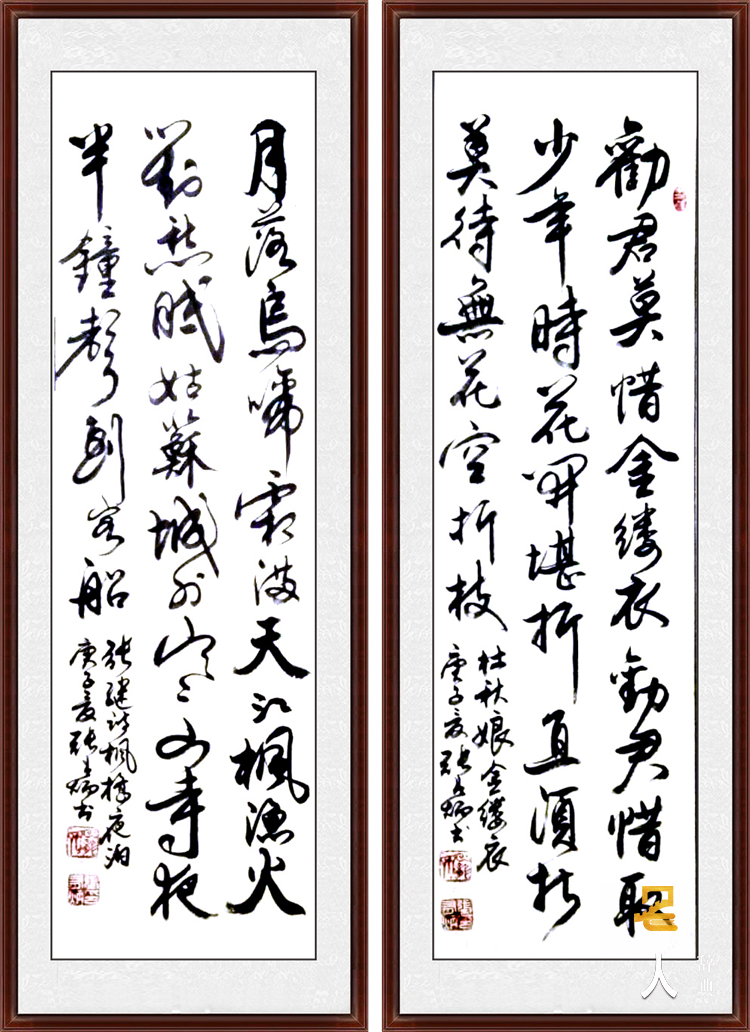 勸君莫惜金缕衣勸君惜取
少年時花開堪折直須折
莫待無花空折枝
杜秋娘金缕衣
庚子夏张炳书
月落烏啼霜满天江楓渔火
對愁眠姑蘇城外寒山寺夜
半鐘聲到客船
张继诗枫橋夜泊
庚子夏张炳书
人